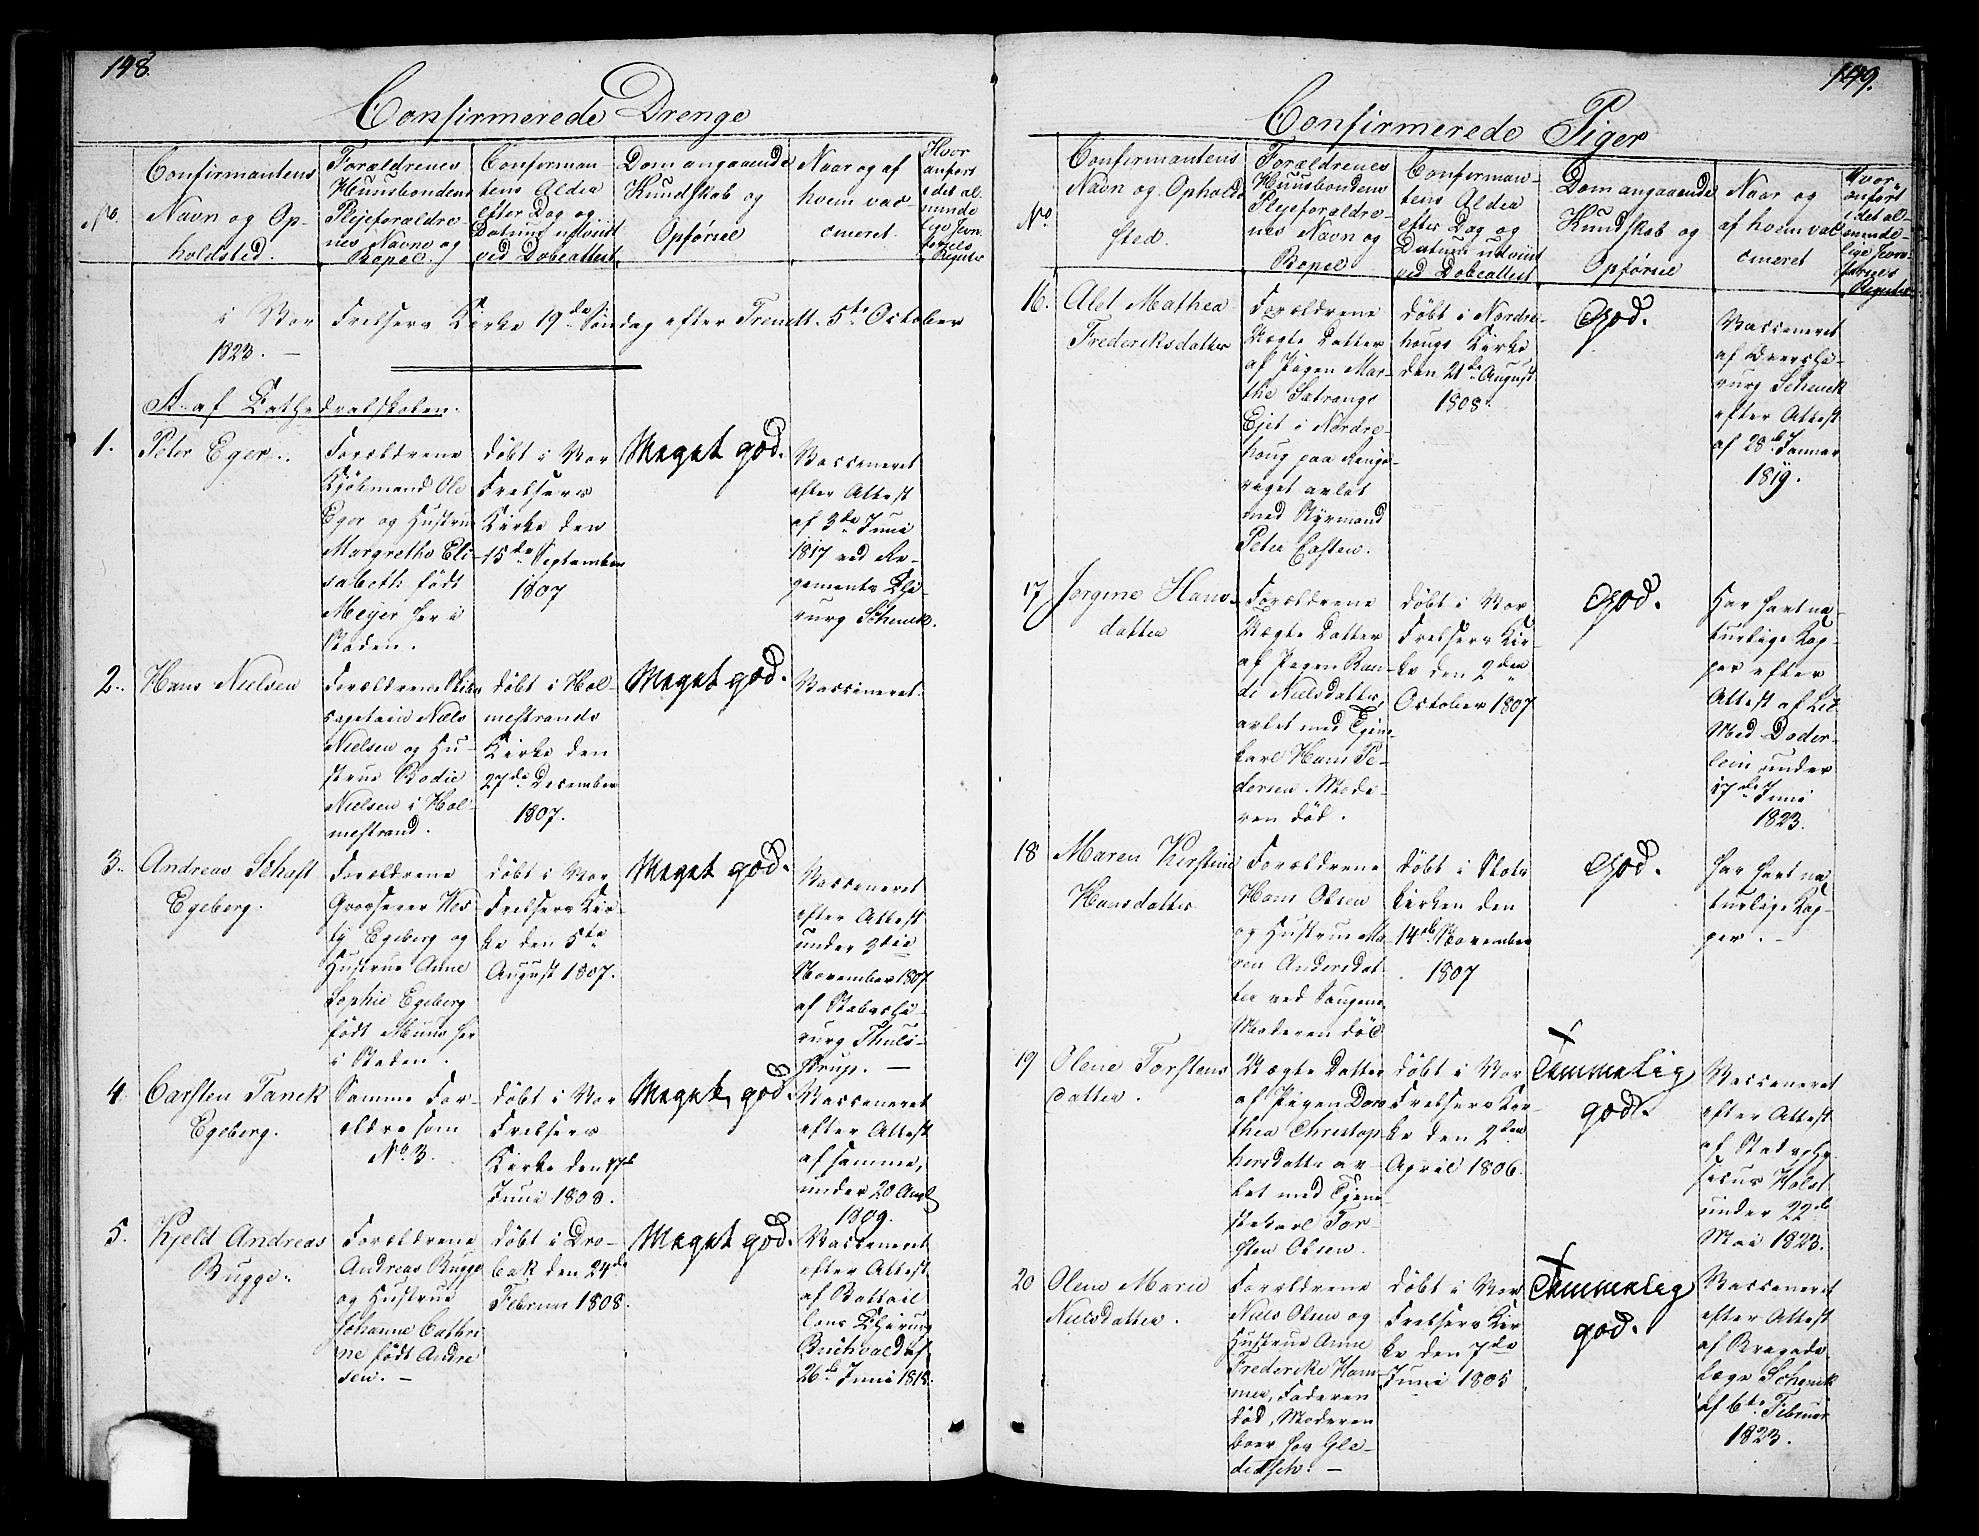 148.
Confirmerede Drenge
No.
Confirmantens
Navn og Op-
holdsted.
Forældrenes
Huusbondens
Plejeforældre
nes Navne og
Bopæl.
Confirman
tens Alder
efter Dag og
Datum udviist
ved Døbeattest
Dom angaaende
Kundskab og
Opførsel
Naar og af
hvem vac-
cineret.
Hvor
anført
i det al-
minde
lige Jevn
førelses
Register
i Vor Frelsers Kirke 19de Søndag efter Trenitt. 5te October
1823. —
A. af Cathedralskolen.
1.
Peter Eger.
Forældrene
Kjøbmand Ole
Eger og Hustru
Margrethe Eli-
sabeth født
Meyer her i
Staden.
døbt i Vor
Frelsers
Kirke den
15de September
1807
Meget god.
Vaccineret
efter Attest
af 3de Juni
1817 ved Re-
gements Chi-
rurg Schenck.
2.
Hans Nielsen
Forældrene Skibs
capetain Niels
Nielsen og Hu-
strue Bodie
Nielsen i Hol-
mestrand.
døbt i Hol-
mestrands
Kirke den
27de December
1807.
Meget god.
Vaccineret.
3.
Andreas Schaft
Egeberg.
Forældrene
Grosserer Wes-
ty Egeberg og
Hustrue Anne
Sophie Egeberg
født Muus her
i Staden.
døbt i Vor
Frelsers Kir-
ke den 5te
August 1807.
Meget god.
Vaccineret
efter Attest
under 3die
November 1807
af Stabschi-
rurg Thuls-
trup. —
4.
Carsten Tanck
Egeberg.
Samme For-
ældre som
No. 3.
døbt i Vor
Frelsers
Kirke den 17de
Juni 1808.
Meget god.
Vaccineret
efter Attest
af samme,
under 20 Aug
1809.
5.
Kjeld Andreas
Bugge.
Forældrene
Andreas Bugge
og Hustrue
Johanne Cathri
ne født Andre
sen. —
døbt i Drø-
bak den 24de
Februar 1808.
Meget god.
Vaccineret
efter Attest
af Battail
lons Chirurg
Buchvald af
26de Juni 1818.
149.
Confirmerede Piger
No.
Confirmantens
Navn og Ophold
sted.
Forældrenes
Huusbondens
Plejeforældre-
nes Navn og
Bopæl
Confirman-
tens Alder
efter Dag og
Datum udviist
ved Døbeattest
Dom angaaende
Kundskab og
Opførsel
Naar og
af hvem vac
cineret
Hvor
anført
i det al-
minde-
lige Jevn-
førelses
Register
16.
Alet Mathea
Frederiksdatter
Forældrene
Uægte Datter
af Pigen Mar-
the Satrangs
Ejet i Nordre-
houg paa Ringe-
riget avlet
med Styrmand
Peter Casten.
døbt i Nordre-
hougs Kirke
den 21de August
1808.
God.
Vaccineret
af Divschi-
rurg Schenck
efter Attest
af 28de Januar
1819.
17
Jørgine Hans-
datter
Forældrene
Uægte Datter
af Pigen Ran-
di Nielsdatter,
avlet med Tjene-
karl Hans Pe-
dersen. Mode-
ren død.
døbt i Vor
Frelsers Kir-
ke den 2den
October 1807
God.
Har havt na-
turlige Kop-
per efter
Attest af
Med Døder-
lein under
17de Juni
1823.
18
Maren Kirstine
Hansdatter
Forældrene
Hans Olsen
og Hustrue Ma-
ren Andersdat-
ter ved Saugene
Moderen død
døbt i Slots
kirken den
14de November
1807
God.
har havt na
turlige Kop-
per. —
19
Olene Torstens
datter.
Uægte Datter
af Pigen Doro
thea Christop
hersdatter av-
let med Tjene-
stekarl Tor-
sten Olsen.
døbt i Vor
Frelsers Kir-
ke den 2den
April 1806.
Temmelig
god.
Vaccineret
efter Attest
af Stadsphy-
sicus Holst
under 22de
Mai 1823.
20
Olene Marie
Nielsdatter.
Forældrene
Niels Olsen og
Hustrue Anne
Frederike Ham-
mer, Faderen
død, Moderen
boer hos Gle-
ditsch. —
døbt i Vor
Frelsers Kir
ke den 7de
Juni 1805
Temmelig
god.
Vaccineret
efter Attest
af Bregade
læge Schenck
af 6te Februar
1823.